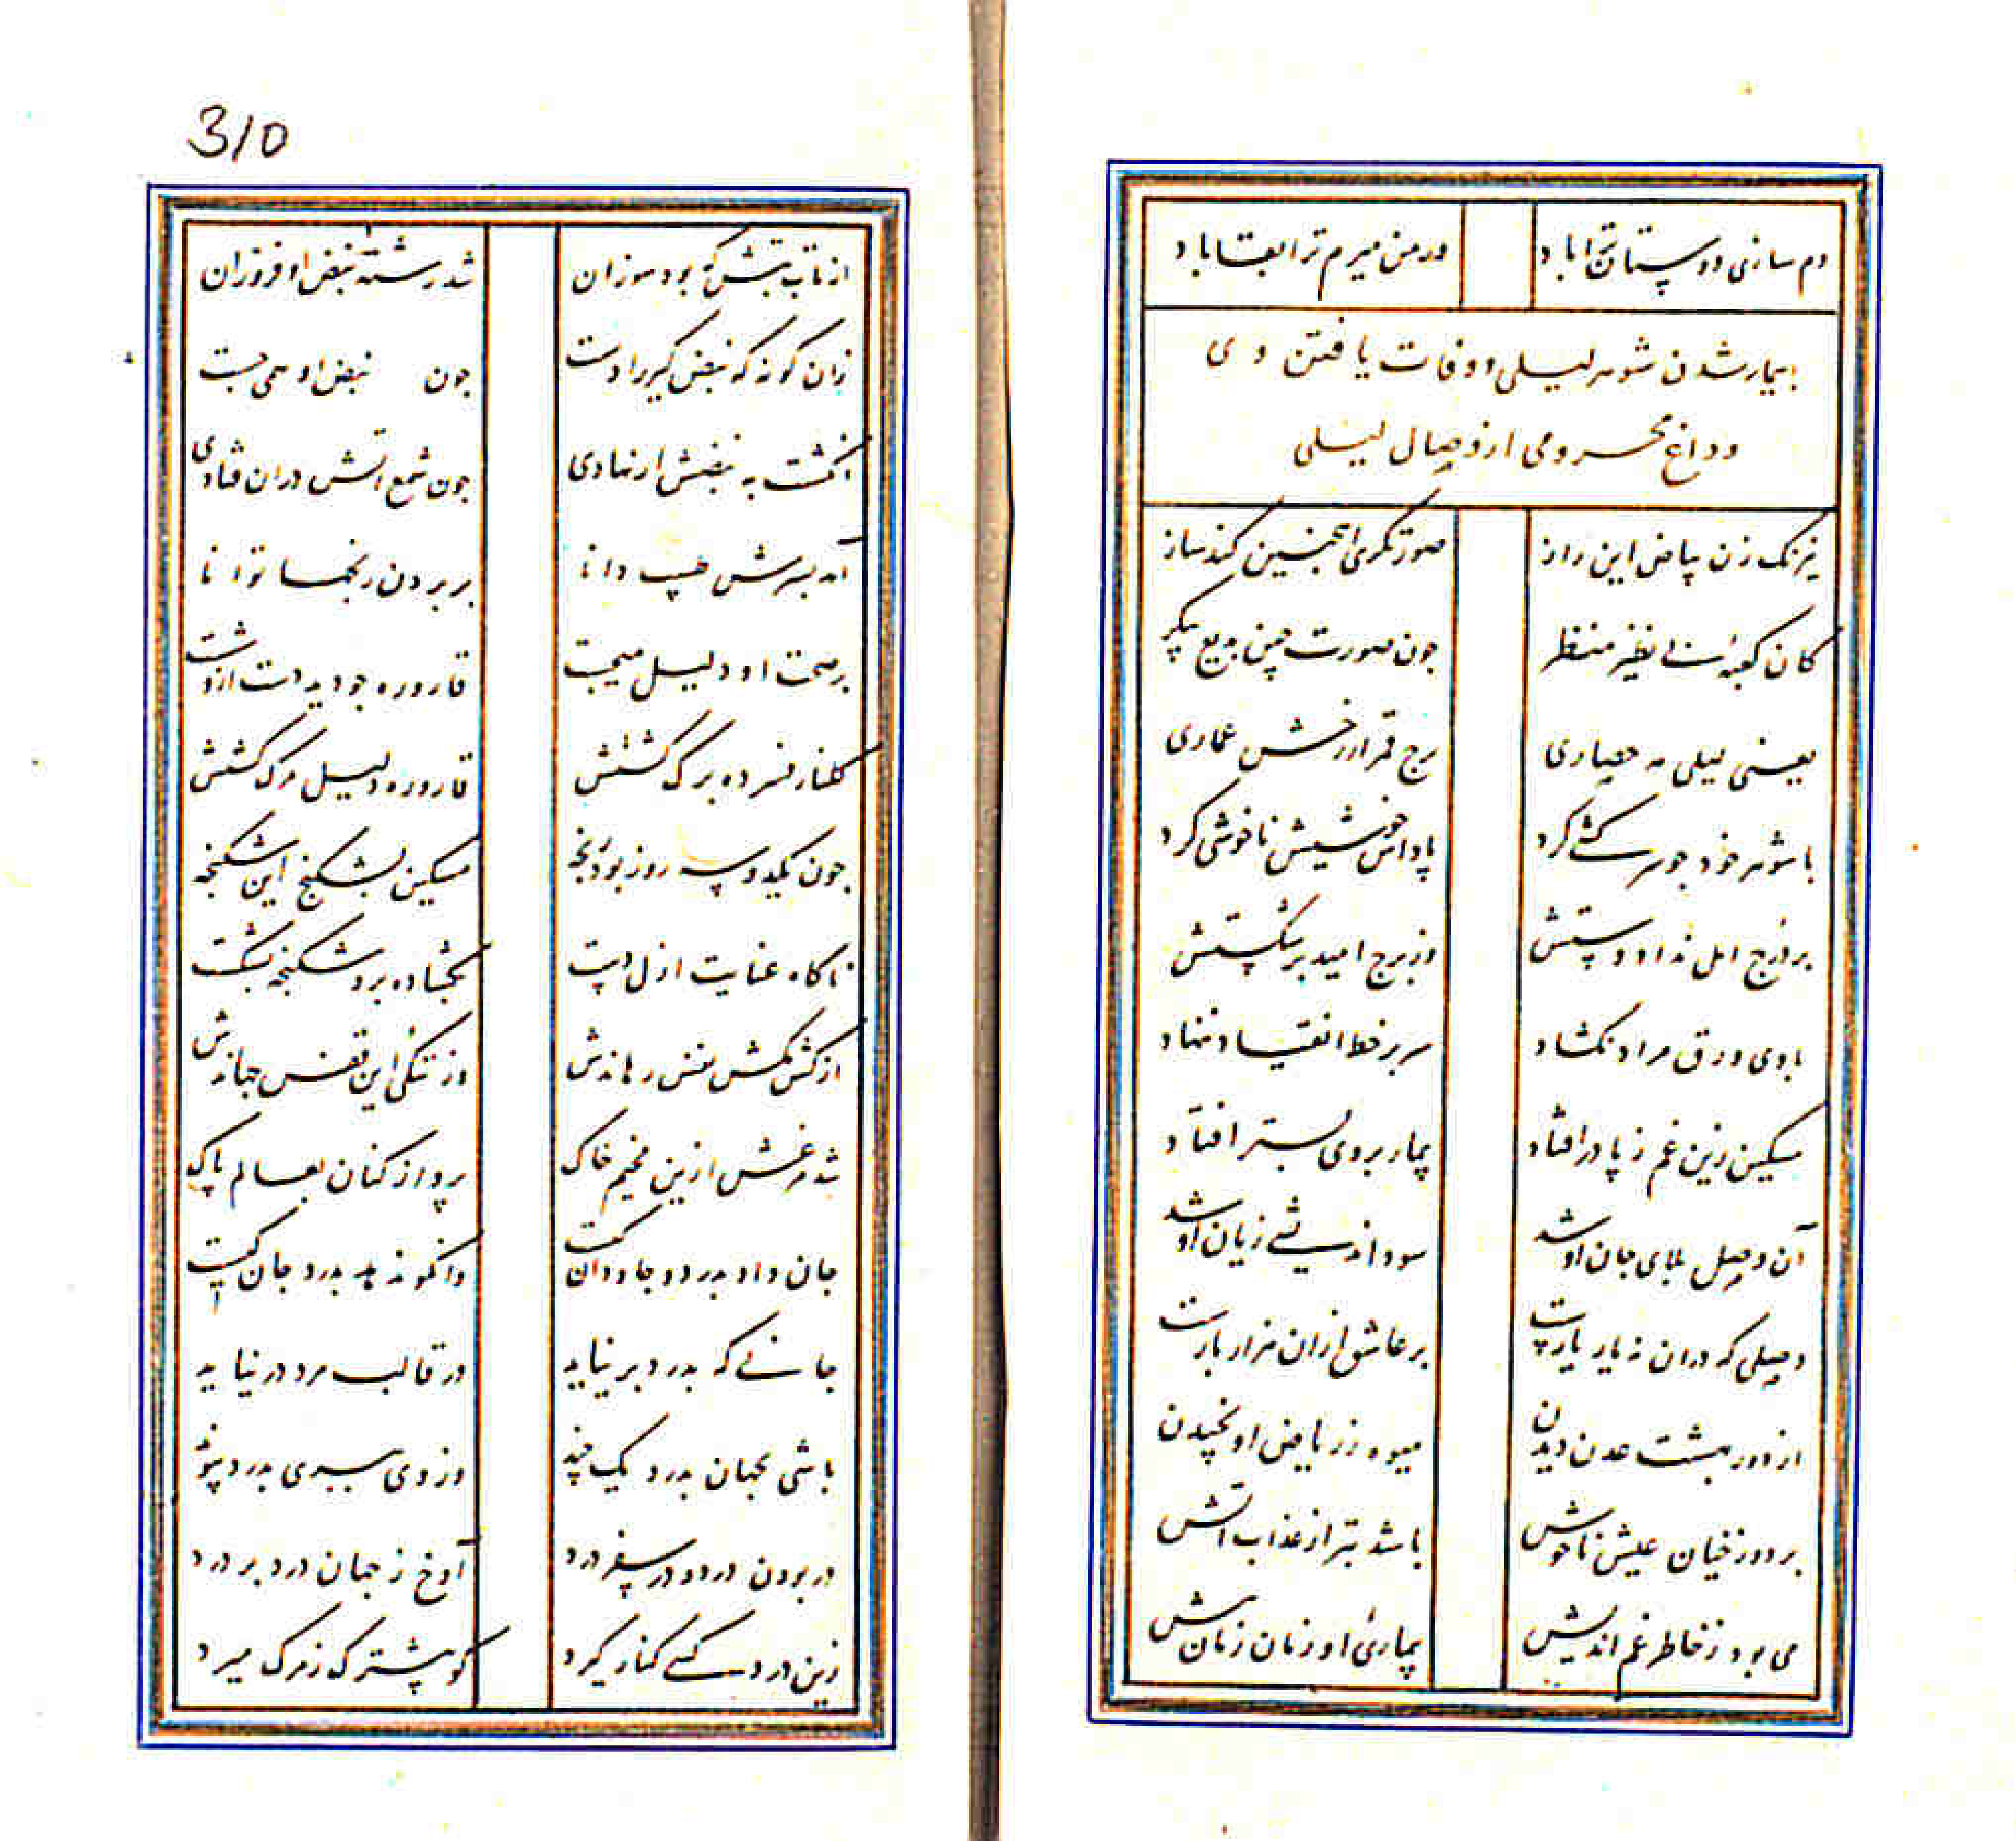 دم سازی دوستان ترا باد ور من میرم ترا بقا باد
بیمار شدن شوهر لیلی و وفات یافتن وی
و داغ محرومی از وصال لیلی
نیرنک زن بیاض این راز صورتکری اینچنین کند ساز
کان کعبهٔ بی نظیر منظر چون صورت چین بدیع پیکر
یعنی لیلی مه حصاری برج قمر از رخش عماری
با شوهر خود چو سرکشی کرد پاداش خوشیش ناخوشی کرد
بر درج امل نداد دستش وز برج امید بر شکستش
با وی ورق مراد نکشاد سر بر خط انقیاد ننهاد
مسکین زین غم ز پا در افتاد بیمار بروی بستر افتاد
آن وصل بلای جان او شد سود اندیشی زیان او شد
وصلی که در ان نه یار یارست بر عاشق ازان هزار بارست
از دور بهشت عدن دیدن میوه ز ریاض او نچیدن
بر دوزخیان عیش ناخوش باشد بتر از عذاب اتش
می بود ز خاطر غم اندیش بیماریٔ او زمان زمان بیش
310
از تاب تبش که بود سوزان شد رشتهٔ نبض او فروزان
زان کونه که نبض کیر را دست چون نبض او همی جست
انکشت به نبضش ار نهادی چون شمع اتش دران فتادی
آمد بسرش طبیب دانا بر بردن رنجها توانا
بر صحت او دلیل میجست قاروره چو دید دست ازو شست
کلنار فسرده برک کشتش قاروره دلیل مرک کشتش
چون یکدو سه روز بود رنجه مسکین بشکنج این شکنجه
ناکاه عنایت ازل دست بکشاد و برو شکنجه بشکست
از کشمکش نفس رهاندش وز تنکی این قفس جهاندش
شد مرغش ازین مخیم خاک پرواز کنان بعالم پاک
جان داد بدرد و جاودان کیست وانکو نه بدرد جان کیست
جانی که بدرد بر نیاید در قالب مرد در نیاید
باشی بجهان بدرد یک چند وز وی ببری بدرد پیوند
در بودن درد و در سفر درد آوخ ز جهان درد بر درد
زین درد کسی کنار کیرد کو پیشترک ز مرک میرد